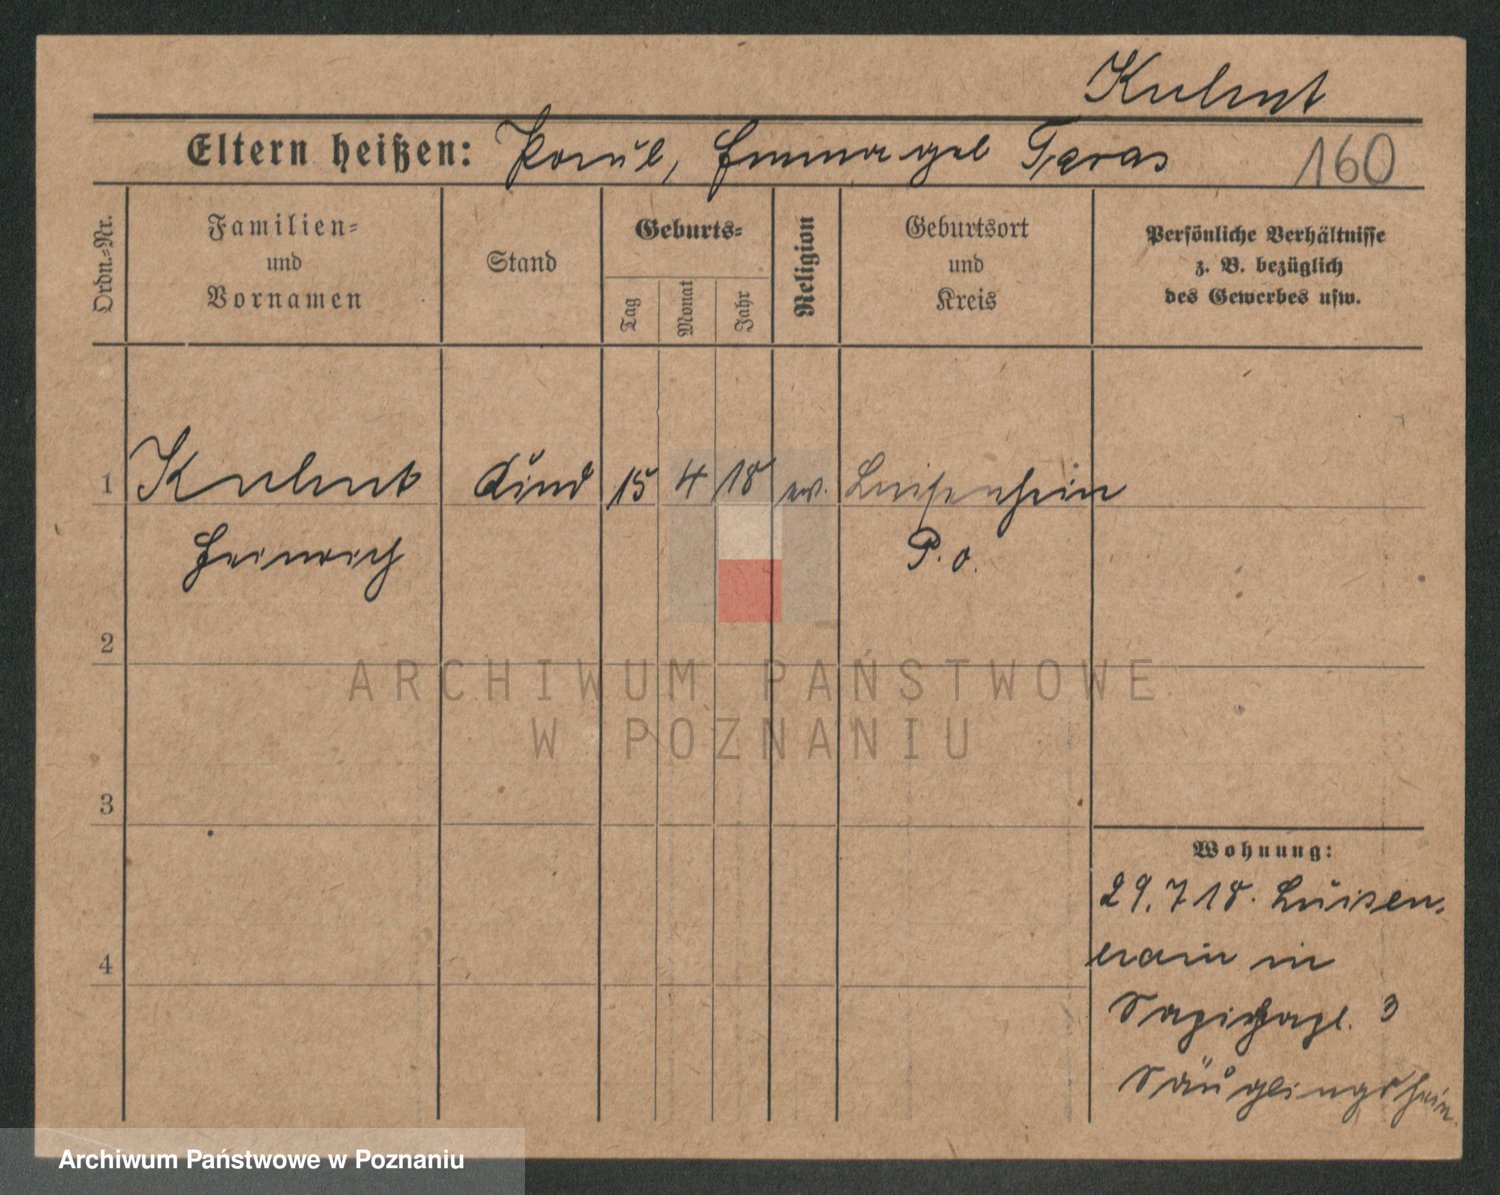 Kuhnt
Eltern heißen: Paul, Emma geb. Taras
160
Ordn.-Nr.
Familien-
und
Vornamen
Stand
Geburts-
Tag
Monat
Jahr
Religion
Geburtsort
und
Kreis
Persönliche Verhältnisse
z. B. bezüglich
des Gewerbes usw.
1 Kuhnt Kind 15 4 18 ev. Luisenhein
Heinrich P. O.
2
3
4
Wohnung:
29.7.18. Luisen-
hain in
Sapiehapl. 3
Säuglingsheim
ARCHIWUM PAŃSTWOWE
W POZNANIU
Archiwum Państwowe w Poznaniu